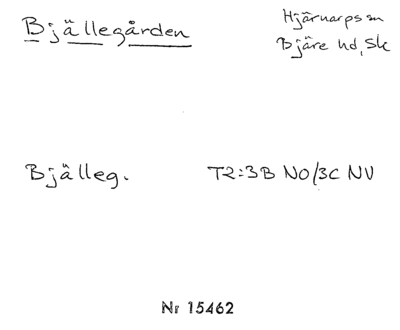 Bjällegården
Hjärnarps sn
Bjäre hd, Sk
Bjälleg.
T2:3B NO/3C NV
Nr 15462